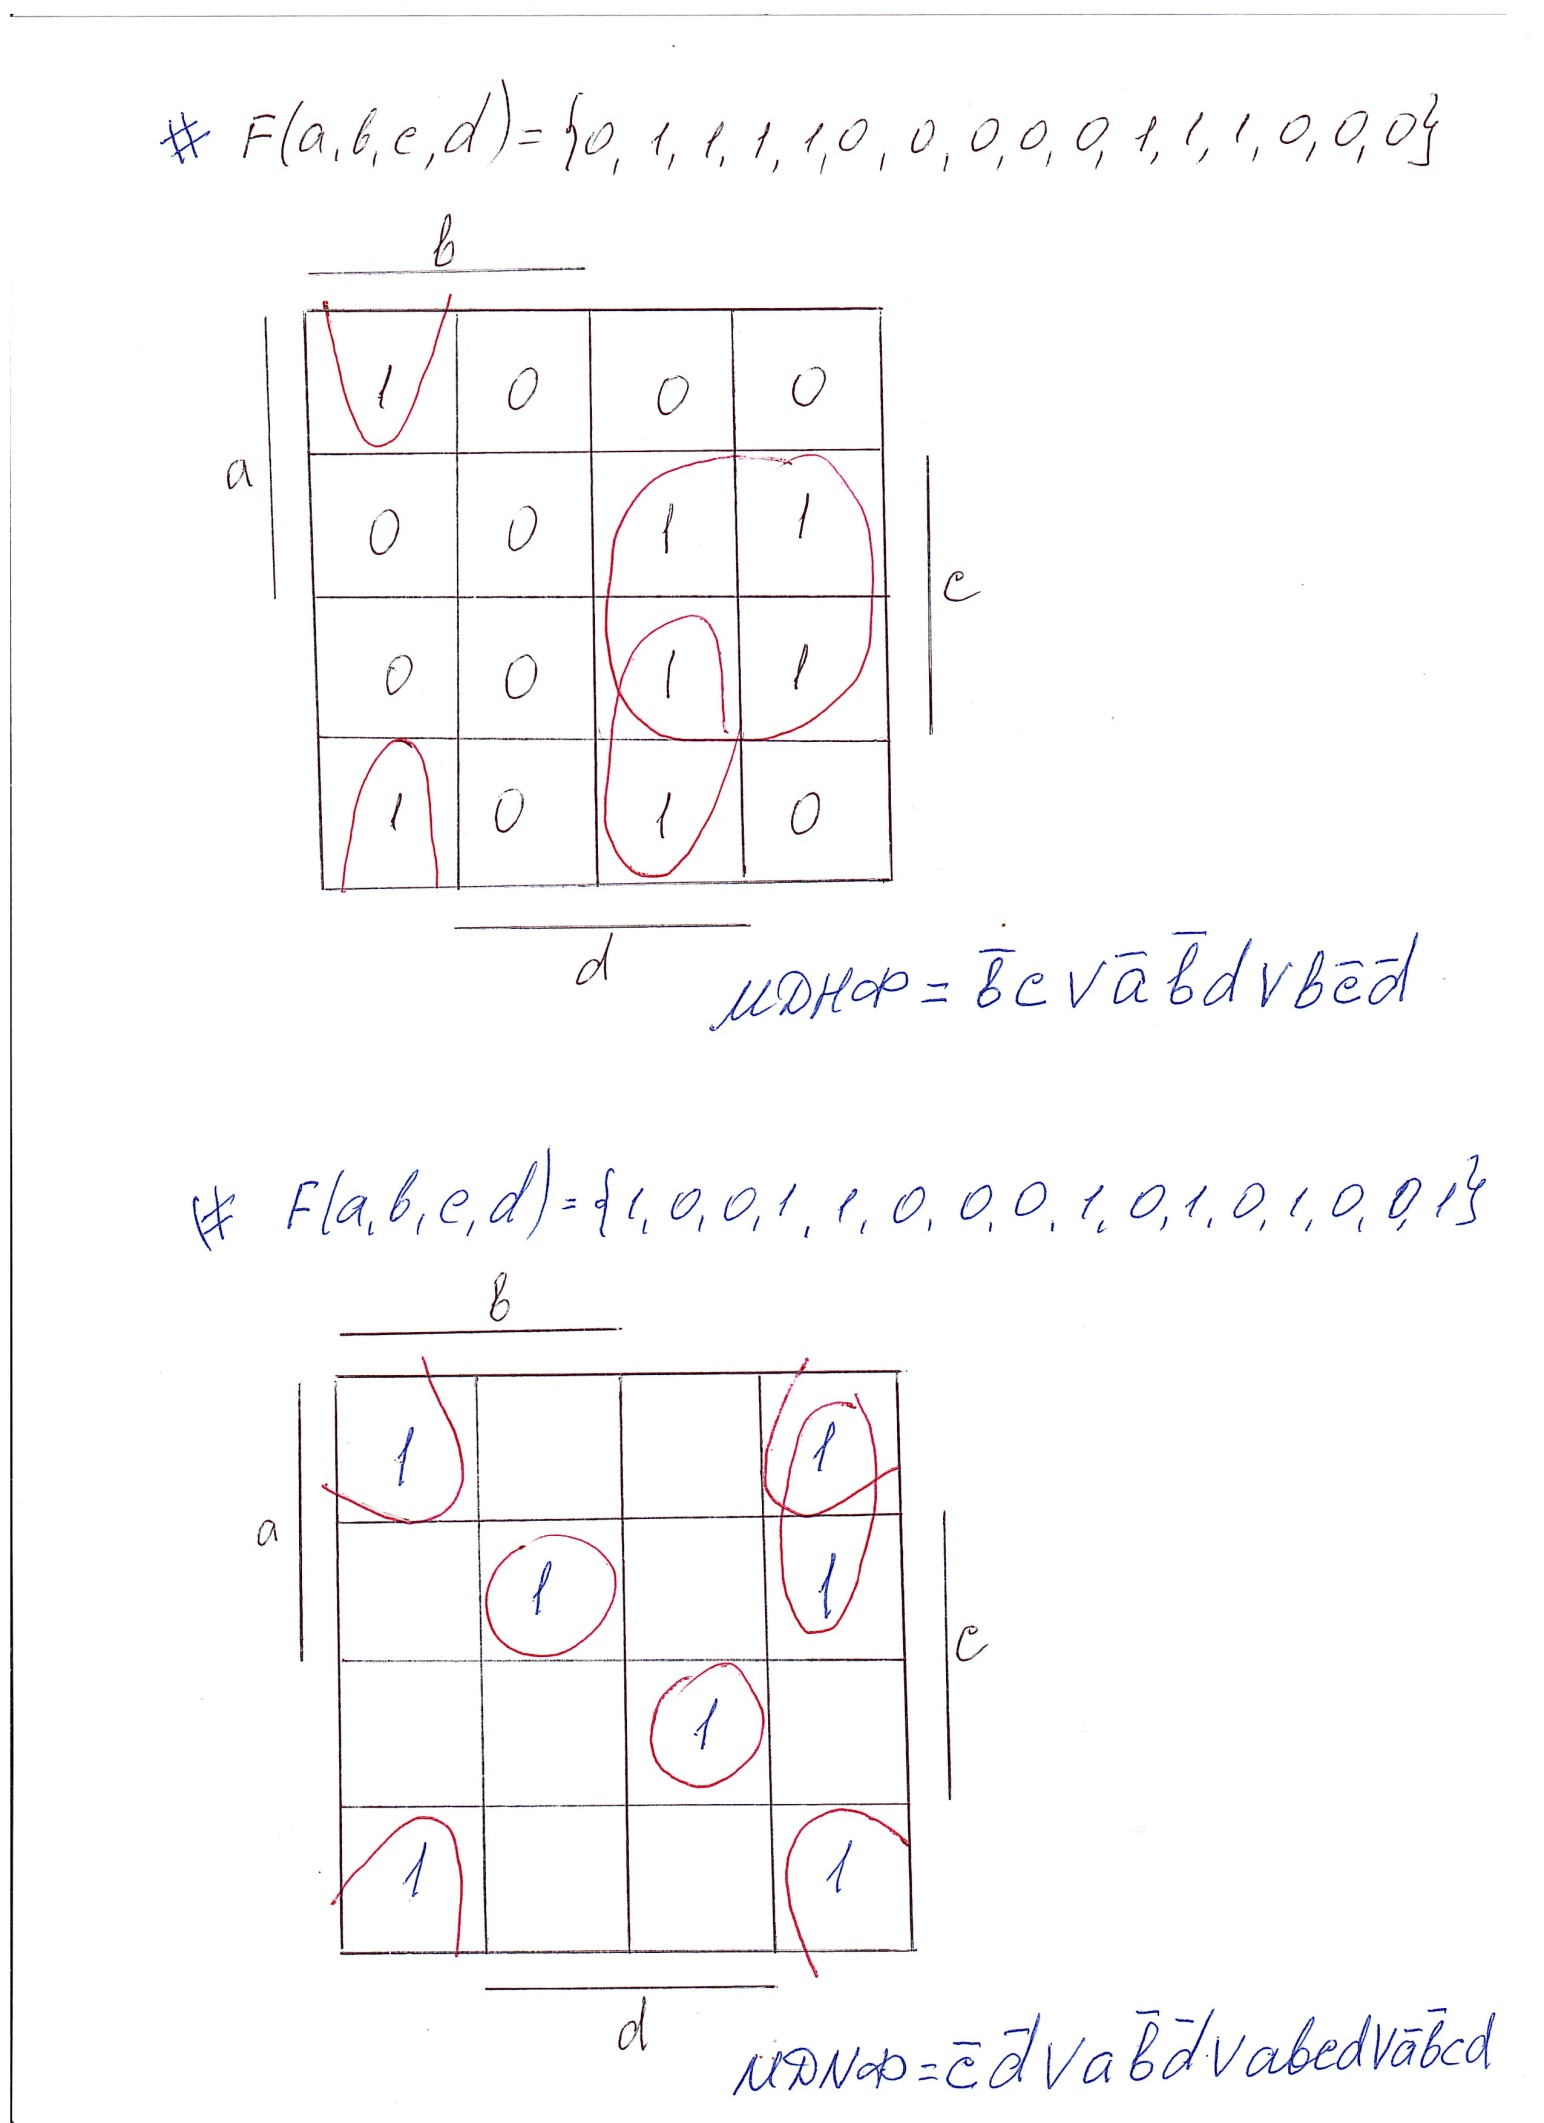 # F(a,b,c,d)={0,1,1,1,1,0,0,0,0,0,1,1,1,0,0,0}
b
1 0 0 0
a
0 0 1 1
c
0 0 1 1
1 0 1 0
d
МДНФ = b̄c ∨ āb̄d ∨ bc̄d̄
# F(a,b,c,d)={1,0,0,1,1,0,0,0,1,0,1,0,1,0,0,1}
b
1 1
a
1 1
c
1
1 1
d
МДNФ = c̄d̄ ∨ ab̄d̄ ∨ abcd ∨ āb̄cd